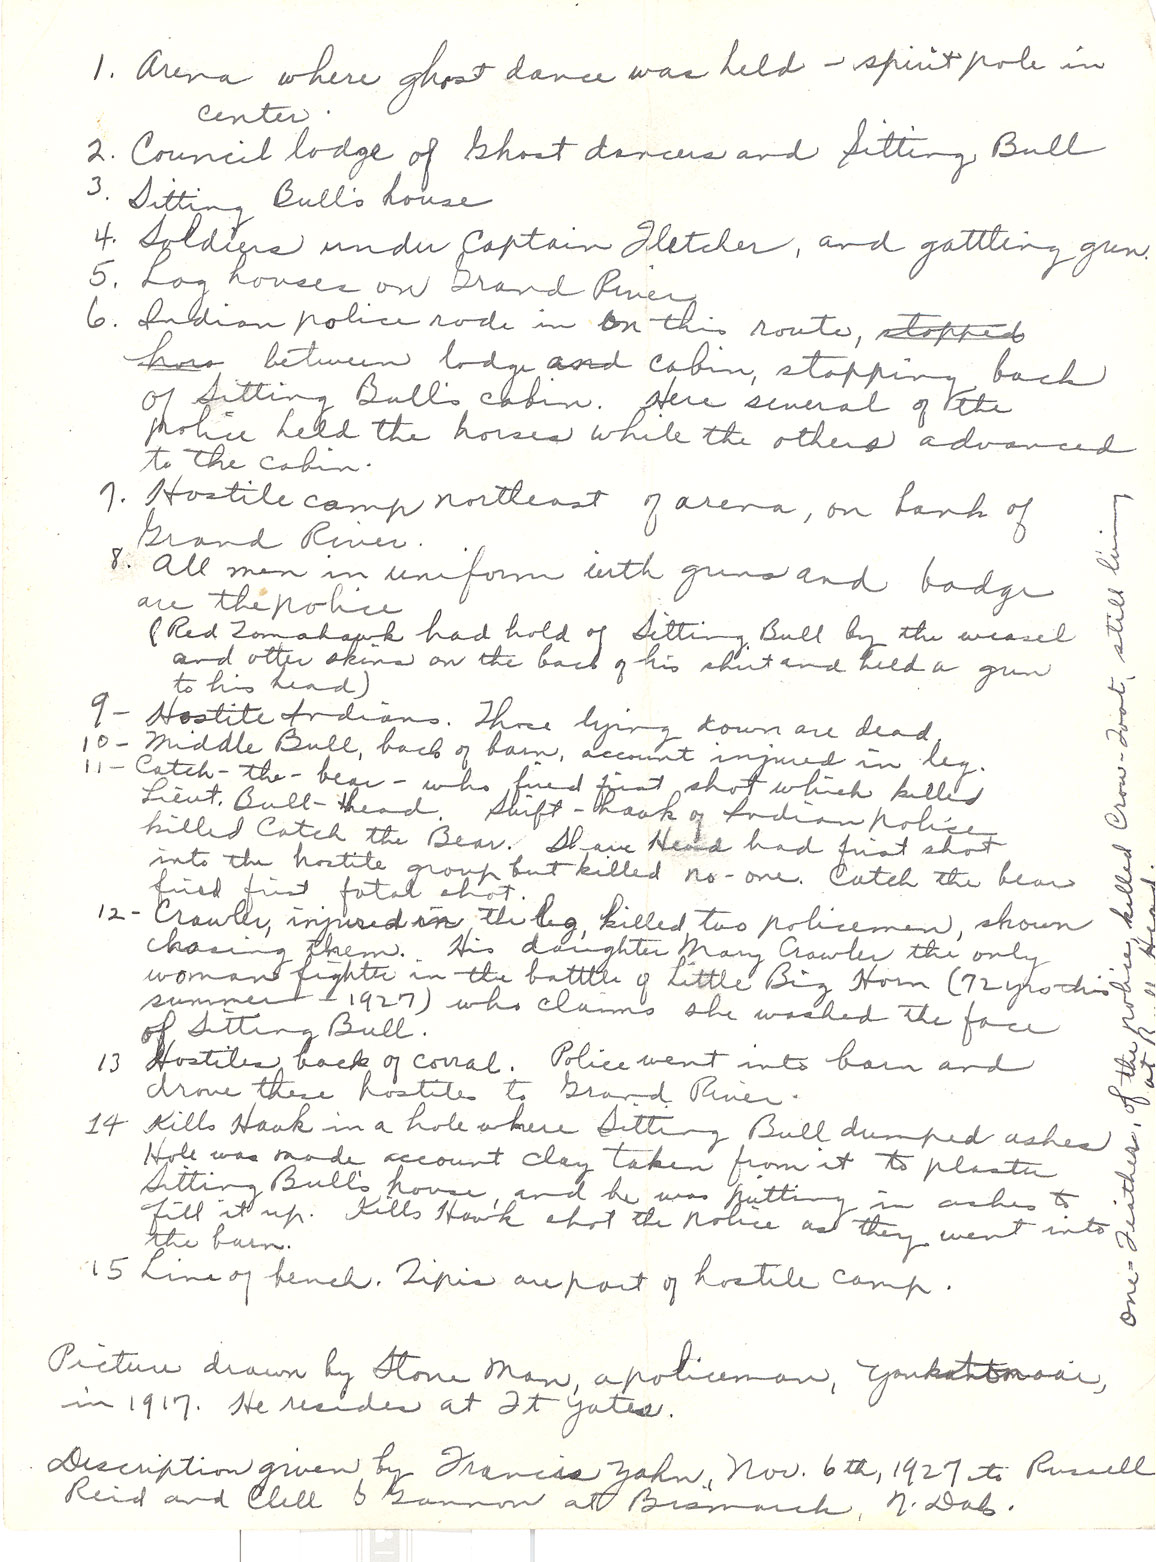 1. Arena where ghost dance was held - spirit pole in
center.
2. Council lodge of Ghost dancers and Sitting Bull
3. Sitting Bull's house
4. Soldiers under Captain Fletcher, and gattling gun.
5. Log houses on Grand River
6. Indian police rode in on this route, stopped
between lodge and cabin, stopping back
of Sitting Bull's cabin. Here several of the
police held the horses while the others advanced
to the cabin.
7. Hostile camp northeast of arena, on bank of
Grand River.
8. All men in uniform with guns and badge
are the police
(Red Tomahawk had hold of Sitting Bull by the weasel
and otter skins on the back of his shirt and held a gun
to his head)
9- Hostile Indians. Those lying down are dead.
10- Middle Bull, back of barn, account injured in leg.
11- Catch-the-bear - who fired first shot which killed
Lieut. Bull-Head. Swift-hawk of Indian police
killed Catch the Bear. Shave Head had first shot
into the hostile group but killed no-one. Catch the bear
fired first fatal shot.
12- Crawler, injured in the leg, killed two policemen, shown
chasing them. His daughter Mary Crawler the only
woman fighter in the battle of Little Big Horn (72 yrs this
summer - 1927) who claims she washed the face
of Sitting Bull.
13 Hostiles back of corral. Police went into barn and
drove these hostiles to Grand River.
14 Kills Hawk in a hole where Sitting Bull dumped ashes
Hole was made account clay taken from it to plaster
Sitting Bull's house, and he was putting in ashes to
fill it up. Kills Hawk shot the police as they went into
the barn.
15 Line of bench. Tipis are part of hostile camp.
Picture drawn by Stone Man, a policeman,
in 1917. He resides at Ft Yates.
Description given by Francis Zahn, Nov. 6th, 1927 to Russell
Reid and Clell G Gannon at Bismarck, N. Dak.
One-Feather, of the police, killed Crow-Foot, still living
at Bull Head.